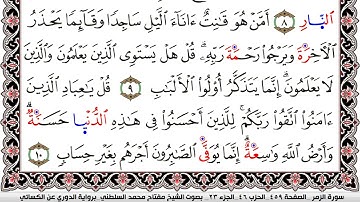 ٱلنّ۪ارِ ۝٨ أَمَّنْ هُوَ قَٰنِتٌ ءَانَآءَ ٱلَّيْلِ سَاجِدًا وَقَآئِمًا يَحْذَرُ
ٱلْأٓخِرَةَ وَيَرْجُوا۟ رَحْمَةَ رَبِّهِۦ ۗ قُلْ هَلْ يَسْتَوِى ٱلَّذِينَ يَعْلَمُونَ وَٱلَّذِينَ
لَا يَعْلَمُونَ ۗ إِنَّمَا يَتَذَكَّرُ أُو۟لُوا۟ ٱلْأَلْبَٰبِ ۝٩ قُلْ يَٰعِبَادِ ٱلَّذِينَ
ءَامَنُوا۟ ٱتَّقُوا۟ رَبَّكُمْ ۚ لِلَّذِينَ أَحْسَنُوا۟ فِى هَٰذِهِ ٱلدُّنْي۪ا حَسَنَةٌ ۗ
وَأَرْضُ ٱللَّهِ وَٰسِعَةٌ ۗ إِنَّمَا يُوَفَّى ٱلصَّٰبِرُونَ أَجْرَهُم بِغَيْرِ حِسَابٍ ۝١٠
سورة الزمر _الصفحة ٤٥٩ _الحزب ٤٦ _الجزء ٢٣ _بصوت الشيخ مفتاح محمد السلطني _برواية الدوري عن الكسائي